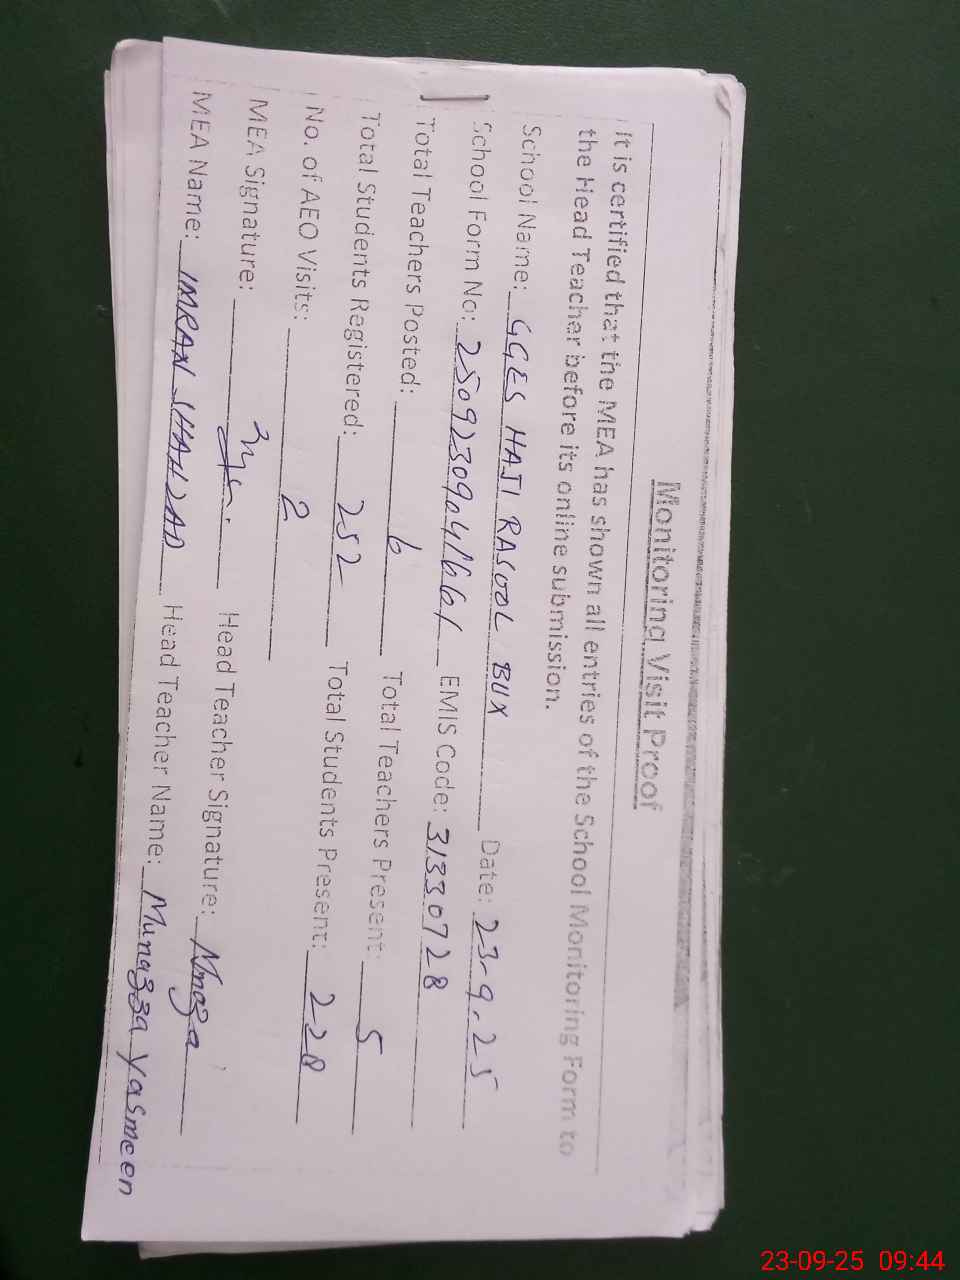 Monitoring Visit Proof
It is certified that the MEA has shown all entries of the School Monitoring Form to
the Head Teacher before its online submission.
School Name: GGES HAJI RASOOL BUX Date: 23-9-25
School Form No: EMIS Code: 31330728
Total Teachers Posted: 6 Total Teachers Present: 5
Total Students Registered: 252 Total Students Present: 228
No. of AEO Visits: 2
MEA Signature: Head Teacher Signature:
MEA Name: IMRAN SHAHZAD Head Teacher Name: Munazza Yasmeen
23-09-25 09:44